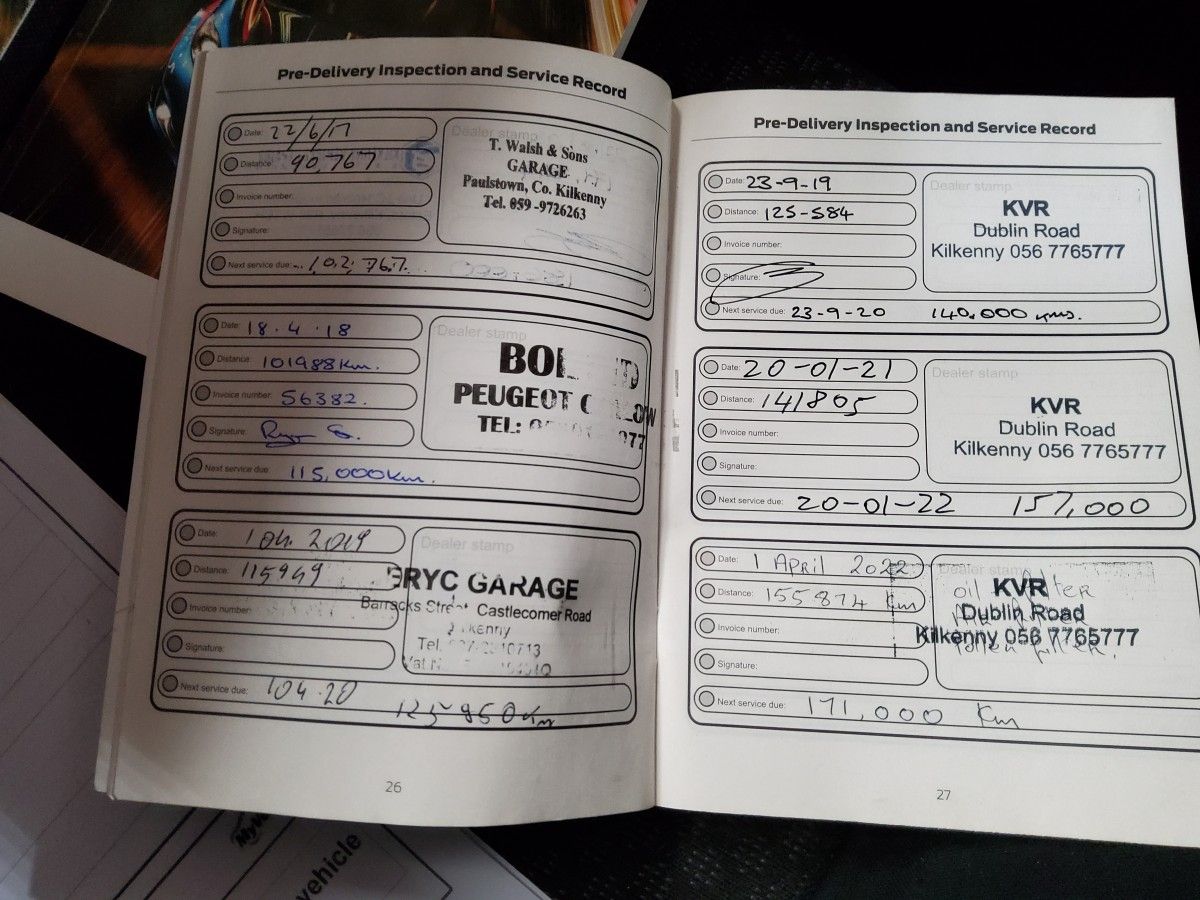 Pre-Delivery Inspection and Service Record
Date: 22/6/17
Distance: 90,767
Invoice number:
Signature:
Next service due: 102,767
Dealer stamp
T. Walsh & Sons
GARAGE
Paulstown, Co. Kilkenny
Tel. 059-9726263
Date: 18.4.18
Distance: 101988Km.
Invoice number: 56382.
Signature:
Next service due 115,000km.
Dealer stamp
PEUGEOT
TEL:
Date: 1 04. 2019
Distance: 115949
Invoice number
Signature:
Next service due: 104.20
Dealer stamp
GARAGE
Barracks Street Castlecomer Road
Tel.
26
Pre-Delivery Inspection and Service Record
Date: 23-9-19
Distance: 125-584
Invoice number:
Signature:
Next service due: 23-9-20 140,000 kms.
Dealer stamp
KVR
Dublin Road
Kilkenny 056 7765777
Date: 20-01-21
Distance: 141805
Invoice number:
Signature:
Next service due: 20-01-22 157,000
Dealer stamp
KVR
Dublin Road
Kilkenny 056 7765777
Date: 1 April 2022
Distance: 155874 km
Invoice number:
Signature:
Next service due: 171,000 Km
Dealer stamp
oil filter
KVR
Dublin Road
Kilkenny 056 7765777
Pollen filter.
27
vehicle